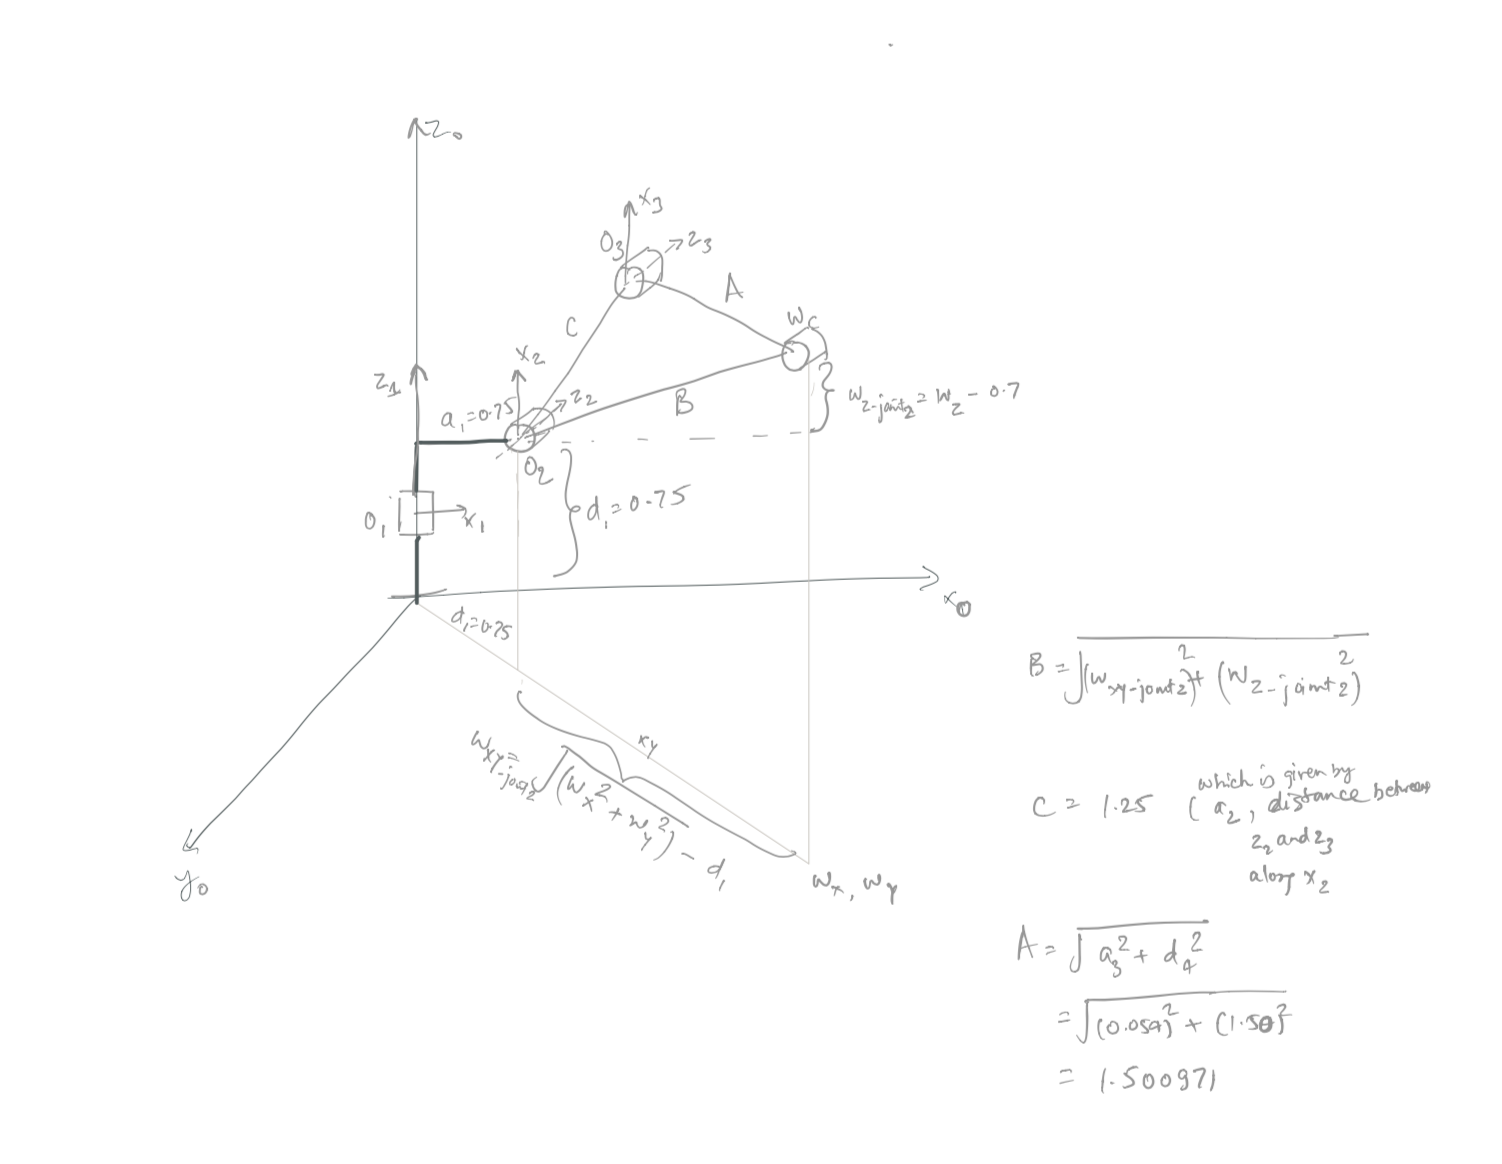 Z₀
X₃
O₃
Z₃
A
C
W_C
X₂
Z₁
Z₂
a₁=0.75
B
W_Z-joint₂ = W_Z - 0.7
O₂
d₁=0.75
O₁
X₁
X₀
d₁=0.75
xy
W_xy-joint₂ = √(W_x² + W_y²) - d₁
W_x, W_y
y₀
B = √(W_xy-joint2)² + (W_Z-joint2)²
C = 1.25 (which is given by
a₂, distance between
Z₂ and Z₃
along X₂
A = √a₃² + d₄²
= √(0.054)² + (1.50)²
= 1.500971